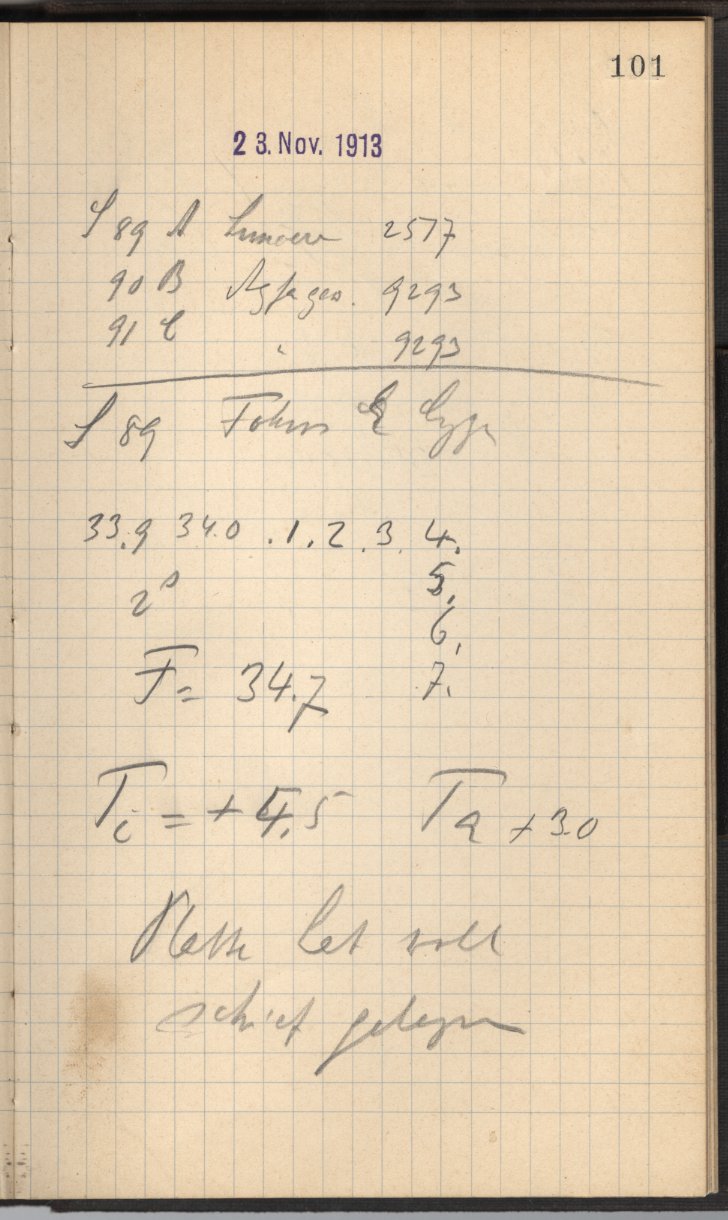 101
23. Nov. 1913
S 89 A Lumiere 2517
90 B Agfa 9293
91 C " 9293
S 89 Fokus
33.9 34.0 .1 .2 .3 4.
2s 5.
6.
F = 34.7 7.
Ti = + 4.5 Ta + 3.0
Platte hat wohl
schief gelegen